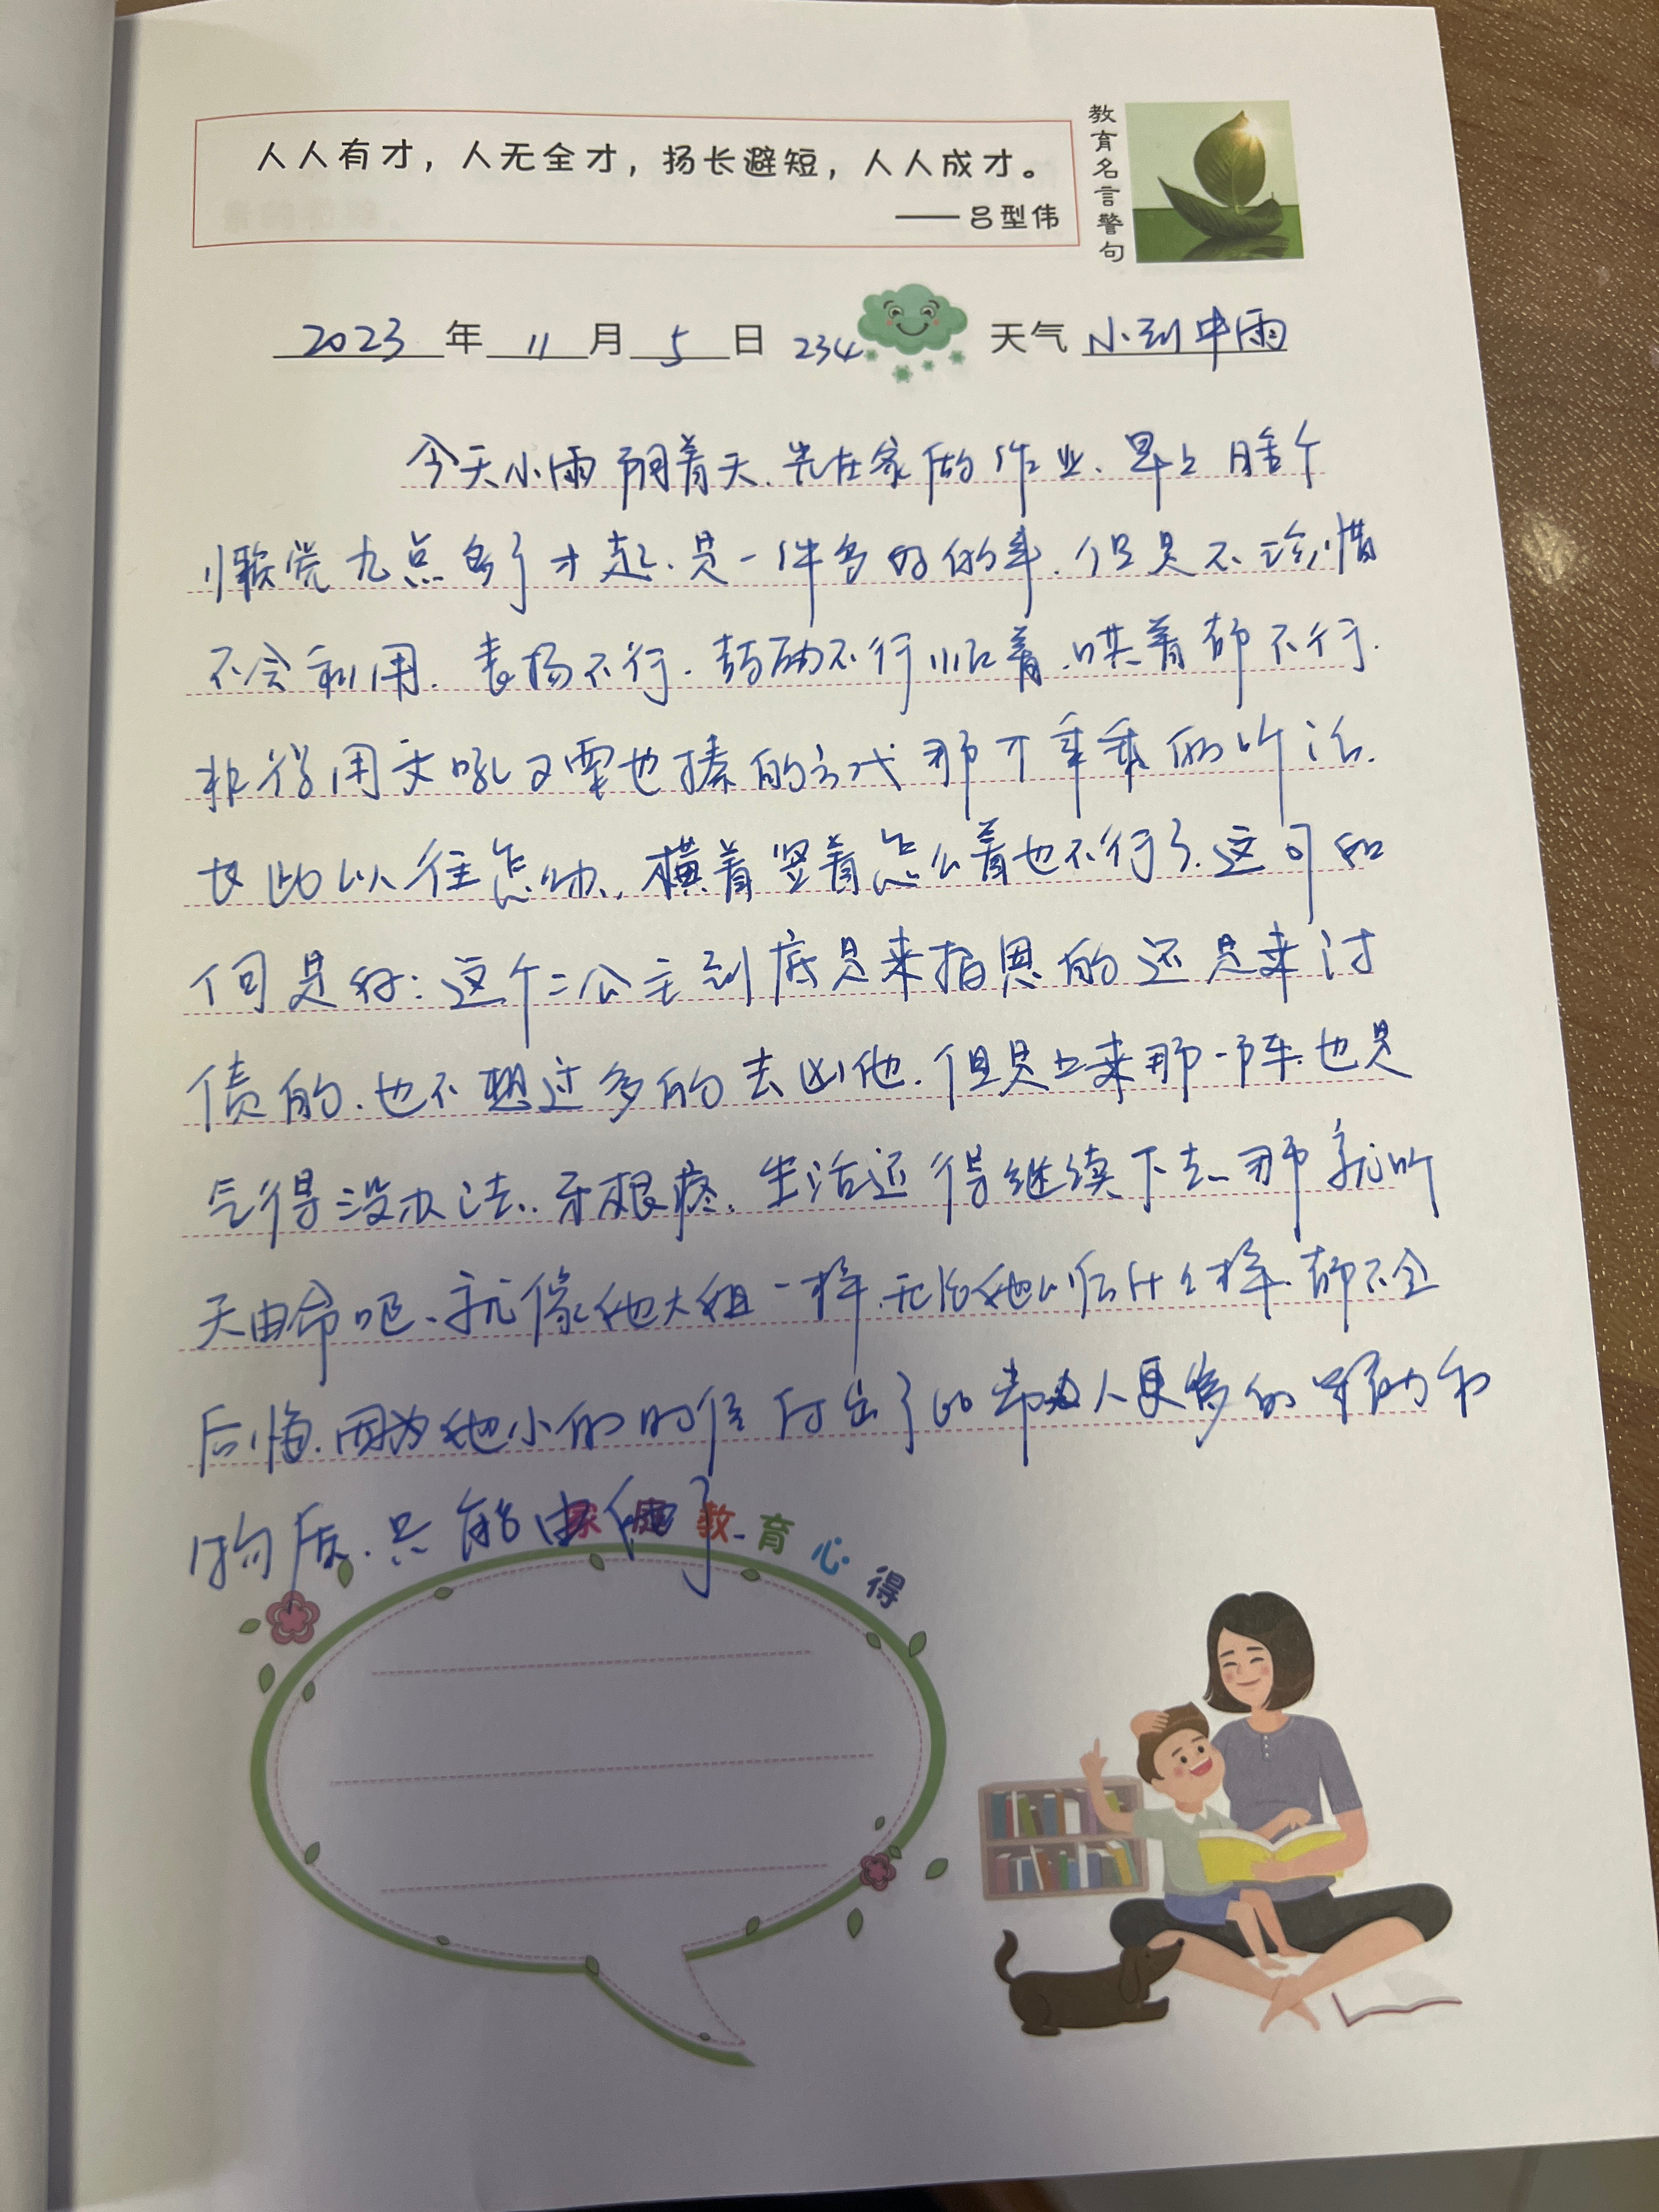 人人有才，人无全才，扬长避短，人人成才。
——吕型伟
教育名言警句
2023年11月5日 234 天气 小到中雨
今天小雨 阴着天、先在家做作业、早上睡个
懒觉九点多了才起、是一件多好的事、但是不珍惜
不会利用、表扬不行、鼓励不行 哄着都不行.
非得用又吼又要也揍的方式 那才乖乖的听话.
长此以往怎办、横着竖着怎么着也不行了、这可如
何是好：这个二公主到底是来报恩的还是来讨
债的、也不想过多的去凶他、但是上来那一阵、也是
气得没办法、牙根疼、生活还得继续下去、那就听
天由命吧、就像他大姐一样、无论她以后什么样、都不会
后悔、因为她小的时候付出了比带人更多的帮助和
物质、只能由他了.
家庭教育心得